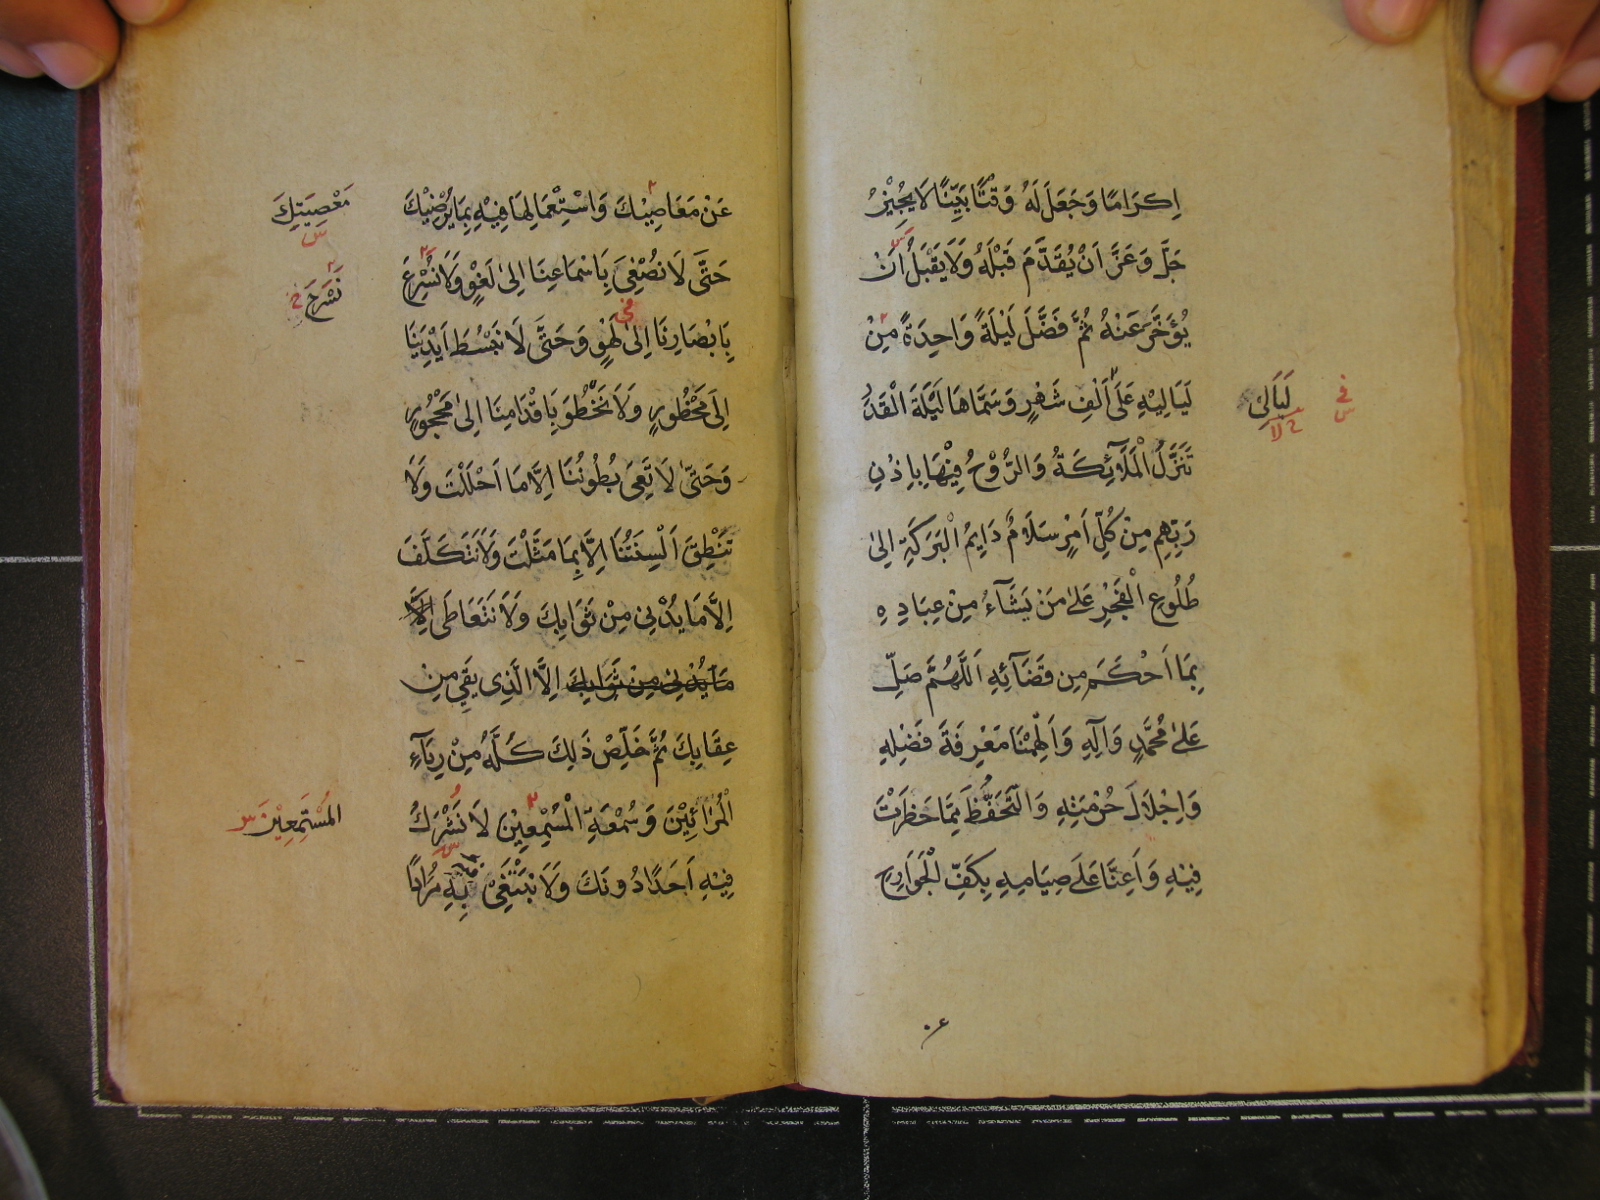 اِكرَامًا وَجَعَلَ لَهُ وَقْتًا بَيِّنًا لَا يُجِيْزُ
جَلَّ وَعَزَّ اَنْ يُقَدَّمَ قَبْلَهُ وَلَا يَقْبَلُ اَنْ
يُؤَخَّرَ عَنْهُ ثُمَّ فَضَّلَ لَيْلَةً وَاحِدَةً مِنْ
لَيَالِيْهِ عَلَى اَلْفِ شَهْرٍ وَسَمَّاهَا لَيْلَةَ الْقَدْرِ
لَيَالِىْ
تَنَزَّلُ الْمَلَآئِكَةُ وَالرُّوْحُ فِيْهَا بِاِذْنِ
رَبِّهِمْ مِنْ كُلِّ اَمْرٍ سَلَامٌ دَايِمُ الْبَرَكَةِ اِلىٰ
طُلُوعِ الْفَجْرِ عَلىٰ مَنْ يَشَآءُ مِنْ عِبَادِهِ
بِمَا اَحْكَمَ مِن قَضَآئِهِ اَللَّهُمَّ صَلِّ
عَلىٰ مُحَمَّدٍ وَآلِهِ وَاَلْهِمْنَا مَعْرِفَةَ فَضْلِهِ
وَاِجْلَالَ حُرْمَتِهِ وَالتَّحَفُّظَ مِمَّا حَظَرْتَ
فِيْهِ وَاَعِنَّا عَلَى صِيَامِهِ بِكَفِّ الْجَوَارِحِ
عَنْ مَعَاصِيْكَ وَاسْتِعْمَالِهَا فِيْهِ بِمَا يُرْضِيْكَ
مَعْصِيَتِكَ
حَتَّى لَا نُصْغِىَ بِاَسْمَاعِنَا اِلىٰ لَغْوٍ وَلَا نُسْرِعَ
نَسْرَحَ
بِاَبْصَارِنَا اِلىٰ لَهْوٍ وَحَتَّى لَا نَبْسُطَ اَيْدِيَنَا
اِلَى مَحْظُورٍ وَلَا نَخْطُوَ بِاَقْدَامِنَا اِلىٰ مَحْجُورٍ
وَحَتىّٰ لَا تَعِىَ بُطُونُنَا اِلَّا مَا اَحْلَلْتَ وَلَا
تَنْطِقَ اَلْسِنَتُنَا اِلَّا بِمَا مَثَّلْتَ وَلَا نَتَكَلَّفَ
اِلَّا مَا يُدْنِى مِنْ ثَوَابِكَ وَلَا نَتَعَاطَى اِلَّا
مَا يُدْنِى مِنْ ثَوَابِكَ اِلَّا الَّذِى يَقِى مِنْ
عِقَابِكَ ثُمَّ خَلِّصْ ذَلِكَ كُلَّهُ مِنْ رِيَآءِ
الْمُرَائِيْنَ وَسُمْعَةِ الْمُسْمِعِيْنَ لَا نُشْرِكُ
المُسْتَمِعِيْنَ
فِيْهِ اَحَدًا دُونَكَ وَلَا نَبْتَغِىْ بِهِ مُرَادًا